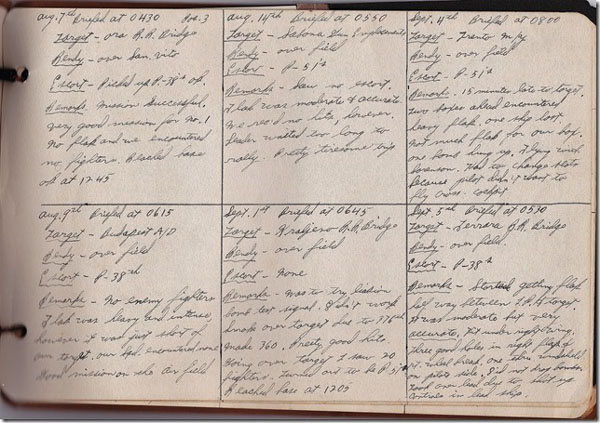 Aug. 7th Briefed at 0430 Pos. 3
Target - Ora R.R. Bridge
Rendy - over San Vito
Escort - Picked up P-38's ok.
Remarks. Mission successful,
very good mission for no. 1
No flak and we encountered
no fighters. Reached base
ok at 1245
Aug. 9th Briefed at 0615
Target - Budapest A/D
Rendy - over field
Escort - P-38th
Remarks - No enemy fighters
flak was heavy and intense,
however it was just short of
our target. our sqd. encountered none
Good mission on the air field
Aug. 14th Briefed at 0550
Target - Savona Gun Emplacements
Rendy - over field
Escort - P-51's
Remarks - Saw no escort,
flak was moderate & accurate.
We recd no hits, however.
Leader waited too long to
rally. Pretty tiresome trip
Sept. 1st Briefed at 0645
Target - Kraljevo R.R. Bridge
Rendy - over field
Escort - None
Remarks - Was to try
bomb test signal. Didn't work
smoke over target due to 376th
made 360. Pretty good hits.
Going over target I saw 20
fighters. turned out to be P-51's
Reached base at 1205
Sept. 4th Briefed at 0800
Target - Trento M/Y
Rendy - over field
Escort - P-51's
Remarks. 15 minutes late to target.
two boxes ahead encountered
heavy flak, one ship lost
Not much flak for our box.
one bomb hung up, flying much
Had to change
because pilot didn't want to
fly cross-cockpit
Sept. 5th Briefed at 0530
Target - Ferrara R.R. Bridge
Rendy - over field.
Escort - P-38th
Remarks - Started getting flak
half way between I.P. & target.
It was moderate but very
accurate, hit under right wing.
three good holes in right flap &
wheel break, one thru windshield
on pilots side. Did not drop bombs
over lead due to shot up
controls in lead ship.